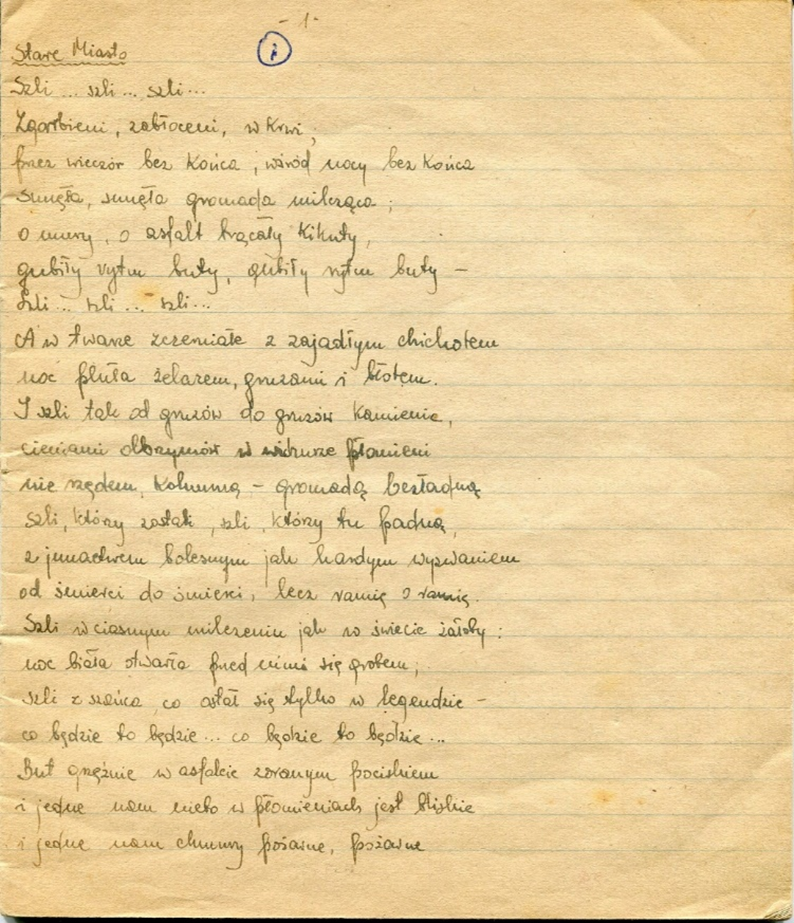 - 1 -
1
Stare Miasto
Szli ... szli ... szli ...
Zgarbieni, zabłoceni, w krwi,
przez wieczór bez końca, wśród nocy bez końca
sunęła, sunęła gromada milcząca;
o mury, o asfalt trącały kikuty,
gubiły rytm buty, gubiły rytm buty -
Szli ... szli ... szli ...
A w twarze sczerniałe z zajadłym chichotem
noc pluła żelazem, gruzami i błotem.
I szli tak od gruzów do gruzów kamienie,
cieniami olbrzymów w wichurze płomieni
nie rzędem, kolumną - gromadą bezładną
szli, którzy zostali, szli, którzy tu padną,
z junactwem bolesnym jak hardym wyzwaniem
od śmierci do śmierci, lecz ramię o ramię.
Szli w ciasnym milczeniu jak w święcie żałoby:
noc biała otwarła przed nimi się grobem;
szli z szańca, co ostał się tylko w legendzie -
co będzie to będzie ... co będzie to będzie ...
But grzęźnie w asfalcie zoranym pociskiem
i jedne nam niebo w płomieniach jest bliskie
i jedne nam chmury pożarne, pożarne